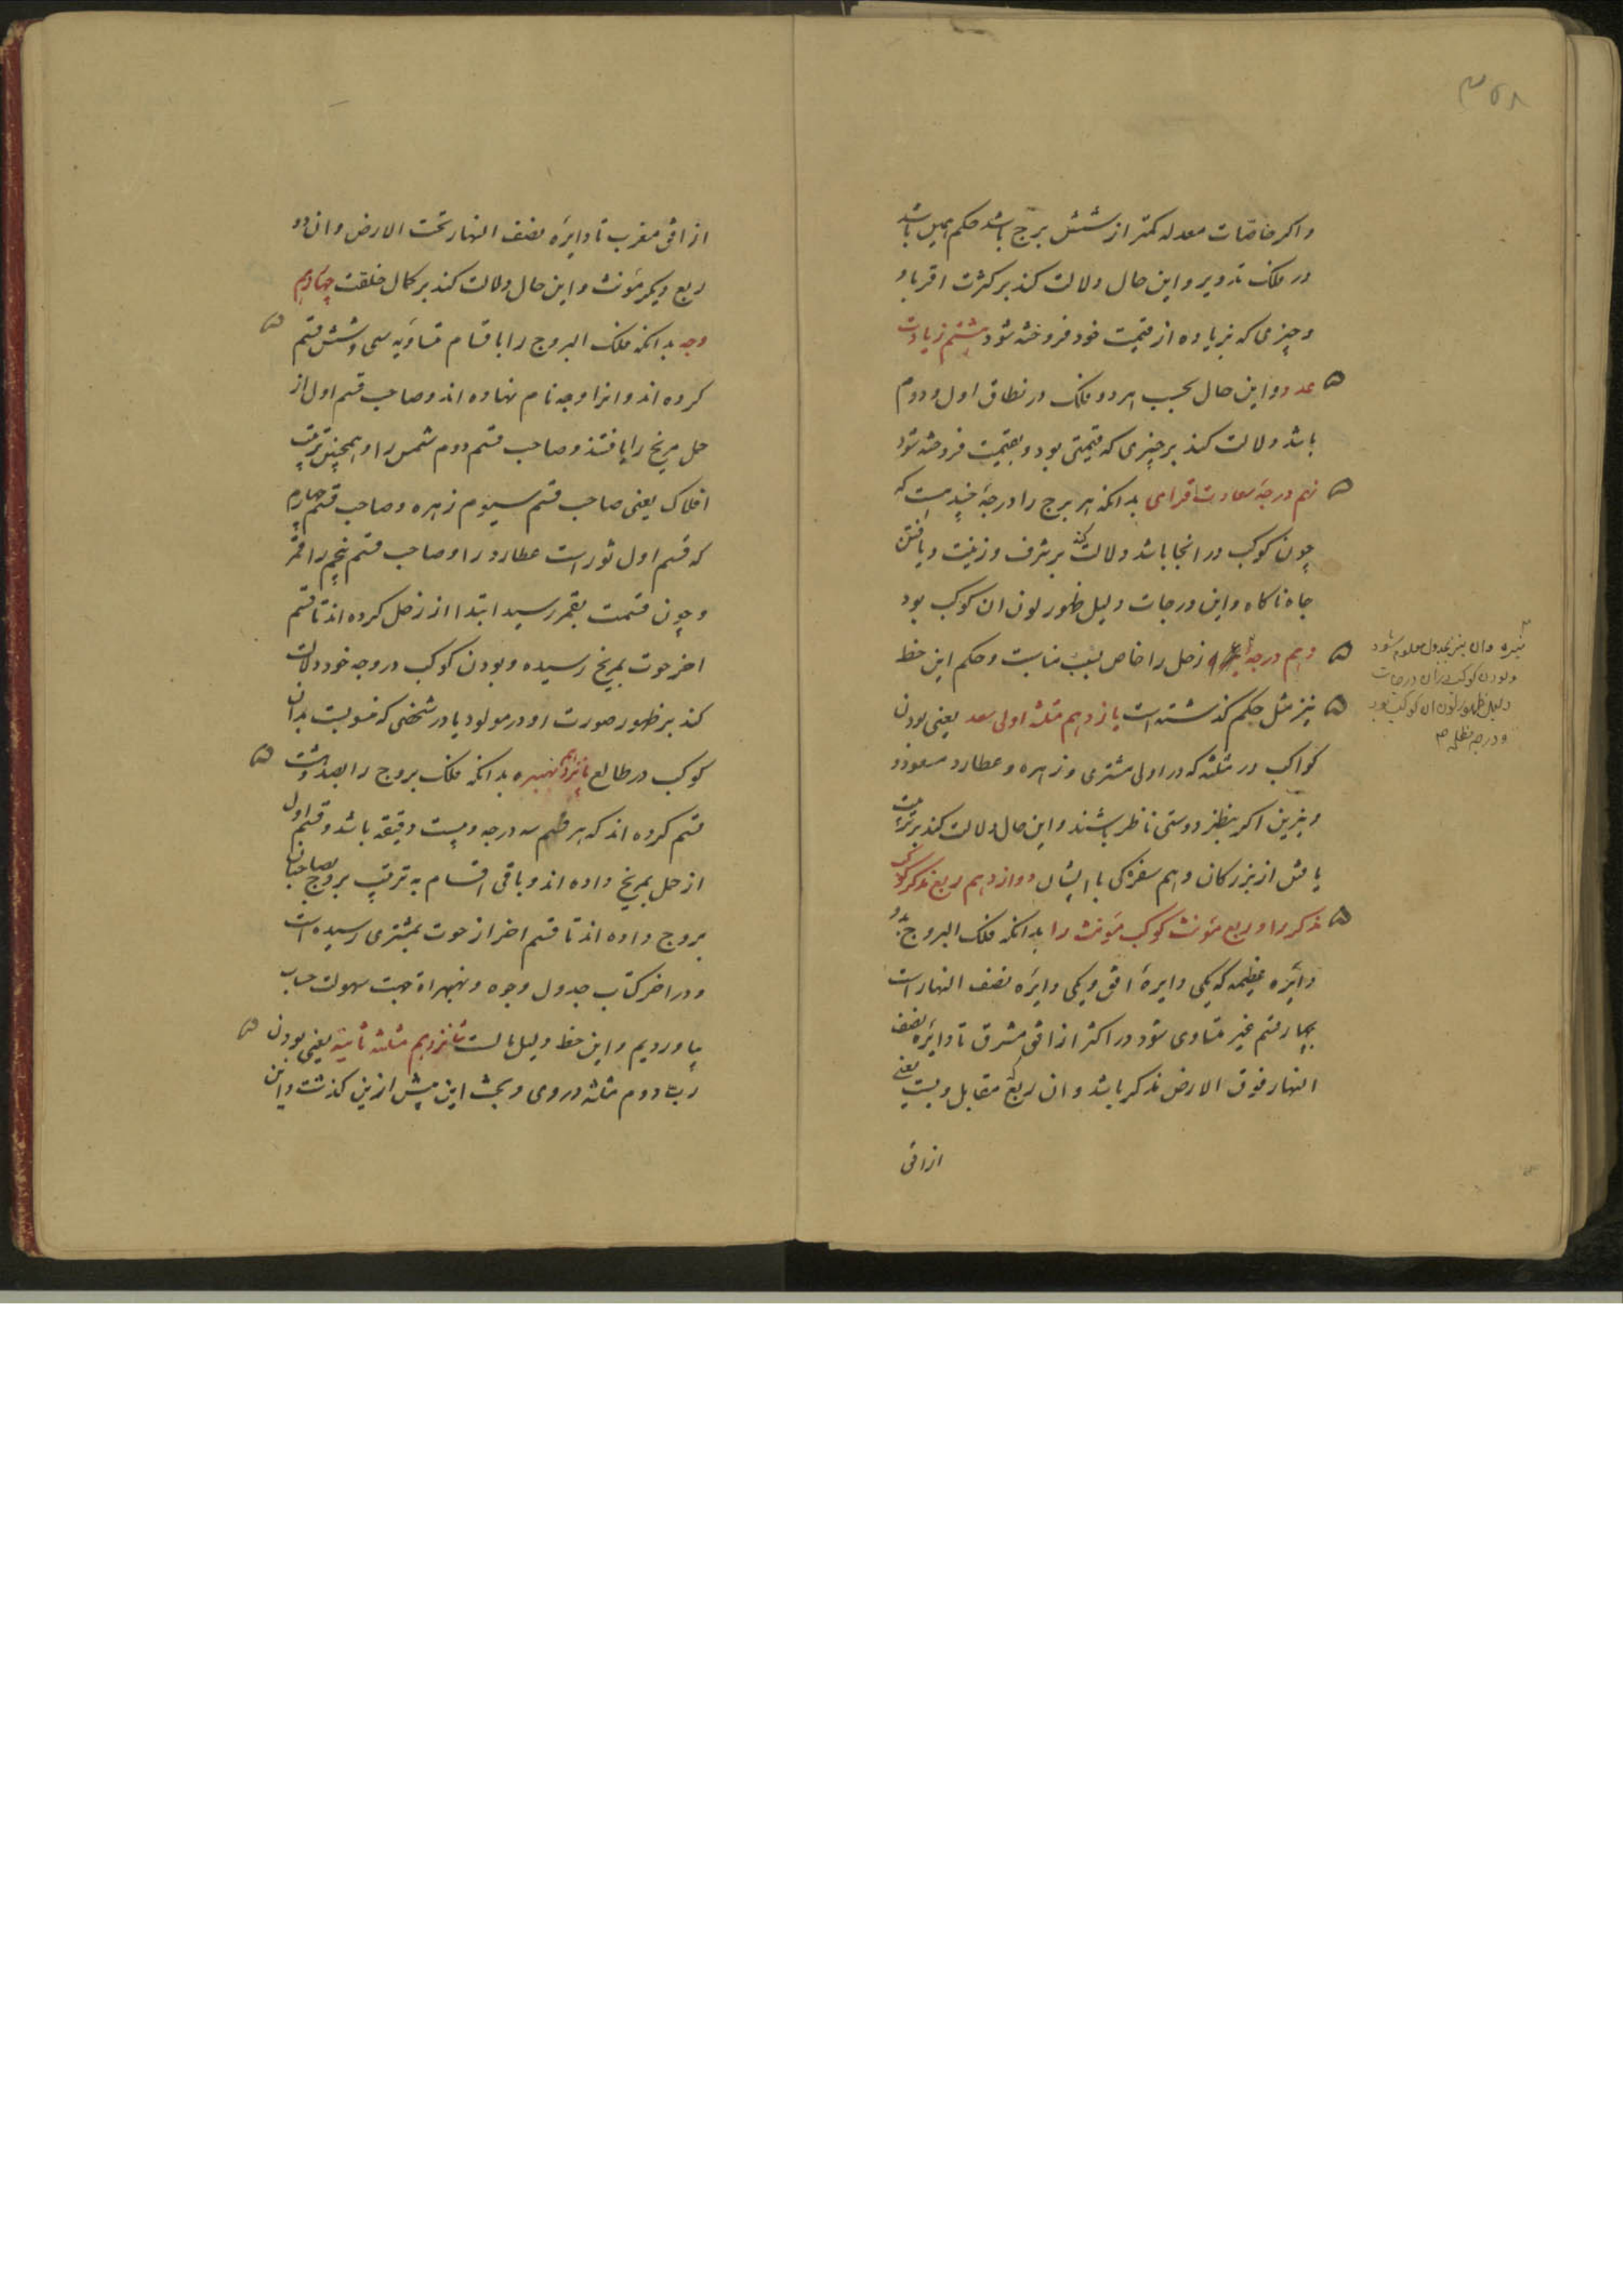 ۳۵۸
واکر خاصات معدله کمتر از شش برج باشد حکم امیل باشد
در فلک تدویر و این حال دلالت کند بر کثرت اقربا و
و چیزی که بزیاده از قیمت خود فروخته شود هشتم زیادت
عدد و این حال بحسب هر دو فلک در نطاق اول و دوم
باشد دلالت کند بر چیزی که قیمتی بود و بقیمت فروخته شود
نهم درجهٔ سعادت افزای بدانکه هر برج را درجهٔ چند هست که
چون کوکب در انجا باشد دلالت کند بر شرف و زینت و یافتن
جاه ناکاه و این درجات دلیل ظهور لون ان کوکب بود
دهم درجهٔ زحل را خاص بسبب مناسبت و حکم این حظ
نیز مثل حکم کذشته است یازدهم مثلثه اولی سعد یعنی بودن
کواکب در مثلثه که در اولی مشتری و زهره و عطارد مسعود و
و نیرین اکر بنظر دوستی ناظر باشند و این حال دلالت کند بر تربیت
یافتن از بزرکان و هم سفرکی با ایشان دوازدهم ربع مذکر کوکب
مذکر را و ربع مؤنث کوکب مؤنث را بدانکه فلک البروج بدو
دائره عظیمه که یکی دایرهٔ افق و یکی دایره نصف النهار است
بچهار قسم غیر متساوی شود در اکثر از افق مشرق تا دایره نصف
النهار فوق الارض مذکر باشد و ان ربع مقابل ویست یعنی
از افق
نیره و ان نیز بجدول معلوم شود
و بودن کوکب در ان درجات
دلیل ظهور لون ان کوکب بود
و درجه مظلمه
از افق مغرب تا دایره نصف النهار تحت الارض و ان دو
ربع دیکر مؤنث و این حال دلالت کند بر کمال خلقت چهاردهم
وجه بدانکه فلک البروج را باقسام متساویه سی و شش قسم
کرده اند و انرا وجه نام نهاده اند و صاحب قسم اول از
حمل مریخ را یافتند و صاحب قسم دوم شمس را و همچنین بترتیب
افلاک یعنی صاحب قسم سیوم زهره و صاحب قسم چهارم
که قسم اول ثور است عطارد را و صاحب قسم پنجم را قمر
و چون قسمت بقمر رسید ابتدا از زحل کرده اند تا قسم
اخر حوت بمریخ رسیده و بودن کوکب در وجه خود دلالت
کند بر ظهور صورت او در مولود یا در شخصی که منسوبست بدان
کوکب در طالع پانزدهم نهبهره بدانکه فلک بروج را بصد و هشت
قسم کرده اند که هر قسم سه درجه و بیست دقیقه باشد و قسم اول
از حمل بمریخ داده اند و باقی اقسام به ترتیب بروج بصاحبان
بروج داده اند تا قسم اخر از حوت بمشتری رسیده است
و در اخر کتاب جدول وجوه و نهبهرات جهت سهولت حساب
بیاوردیم و این حظ دلیل شانزدهم مثلثه ثانیه یعنی بودن
رب دوم مثلثه در وی و بحث این پیش ازین کذشت و این